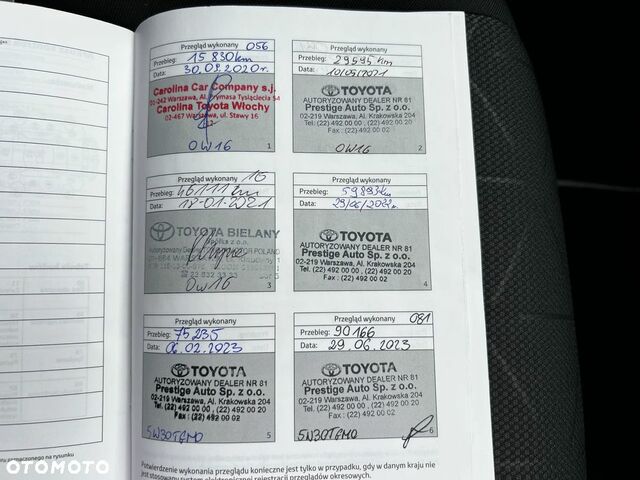 Przegląd wykonany 056
Przebieg: 15 830km
Data: 30.09.2020r.
Carolina Car Company s.j.
01-242 Warszawa, Al. Prymasa Tysiąclecia 54
Carolina Toyota Włochy
02-467 Warszawa, ul. Stawy 16
OW16
1
Przegląd wykonany
Przebieg: 29595 km
Data: 10/05/2021
TOYOTA
AUTORYZOWANY DEALER NR 81
Prestige Auto Sp. z o.o.
02-219 Warszawa, Al. Krakowska 204
Tel. (22) 492 00 00 , (22) 492 00 20
Fax : (22) 492 00 02
OW16
2
Przegląd wykonany 16
Przebieg: 46111 km
Data: 18-01-2021
TOYOTA BIELANY
3
OW16
Przegląd wykonany
Przebieg: 59893km
Data: 29/06/2022r.
TOYOTA
AUTORYZOWANY DEALER NR 81
Prestige Auto Sp. z o.o.
02-219 Warszawa, Al. Krakowska 204
Tel. (22) 492 00 00 , (22) 492 00 20
Fax : (22) 492 00 02
4
Przegląd wykonany
Przebieg: 75235
Data: 06.02.2023
TOYOTA
AUTORYZOWANY DEALER NR 81
Prestige Auto Sp. z o.o.
02-219 Warszawa, Al. Krakowska 204
Tel. (22) 492 00 00 , (22) 492 00 20
Fax : (22) 492 00 02
5W30TGMO
5
Przegląd wykonany 081
Przebieg: 90166
Data: 29.06.2023
TOYOTA
AUTORYZOWANY DEALER NR 81
Prestige Auto Sp. z o.o.
02-219 Warszawa, Al. Krakowska 204
Tel. (22) 492 00 00 , (22) 492 00 20
Fax : (22) 492 00 02
5W30TGMO
6
Potwierdzenie wykonania przeglądu konieczne jest tylko w przypadku, gdy w danym kraju nie
jest stosowany system elektronicznej rejestracji przeglądów okresowych.
zaznaczonego na rysunku
OTOMOTO